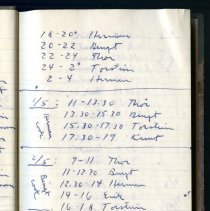 18-20 Herman
20-22 Bengt
22-24 Thor
24-2 Torstein
2-4 Herman
1/5: 11-13.30 Thor
13.30-15.30 Bengt
15.30-17.30 Torstein
17.30-19 Knut
Herman cook
2/5: 9-11 Thor
11-12.30 Bengt
12.30-14 Herman
14-16 Erik
16-18 Torstein
Bengt cook